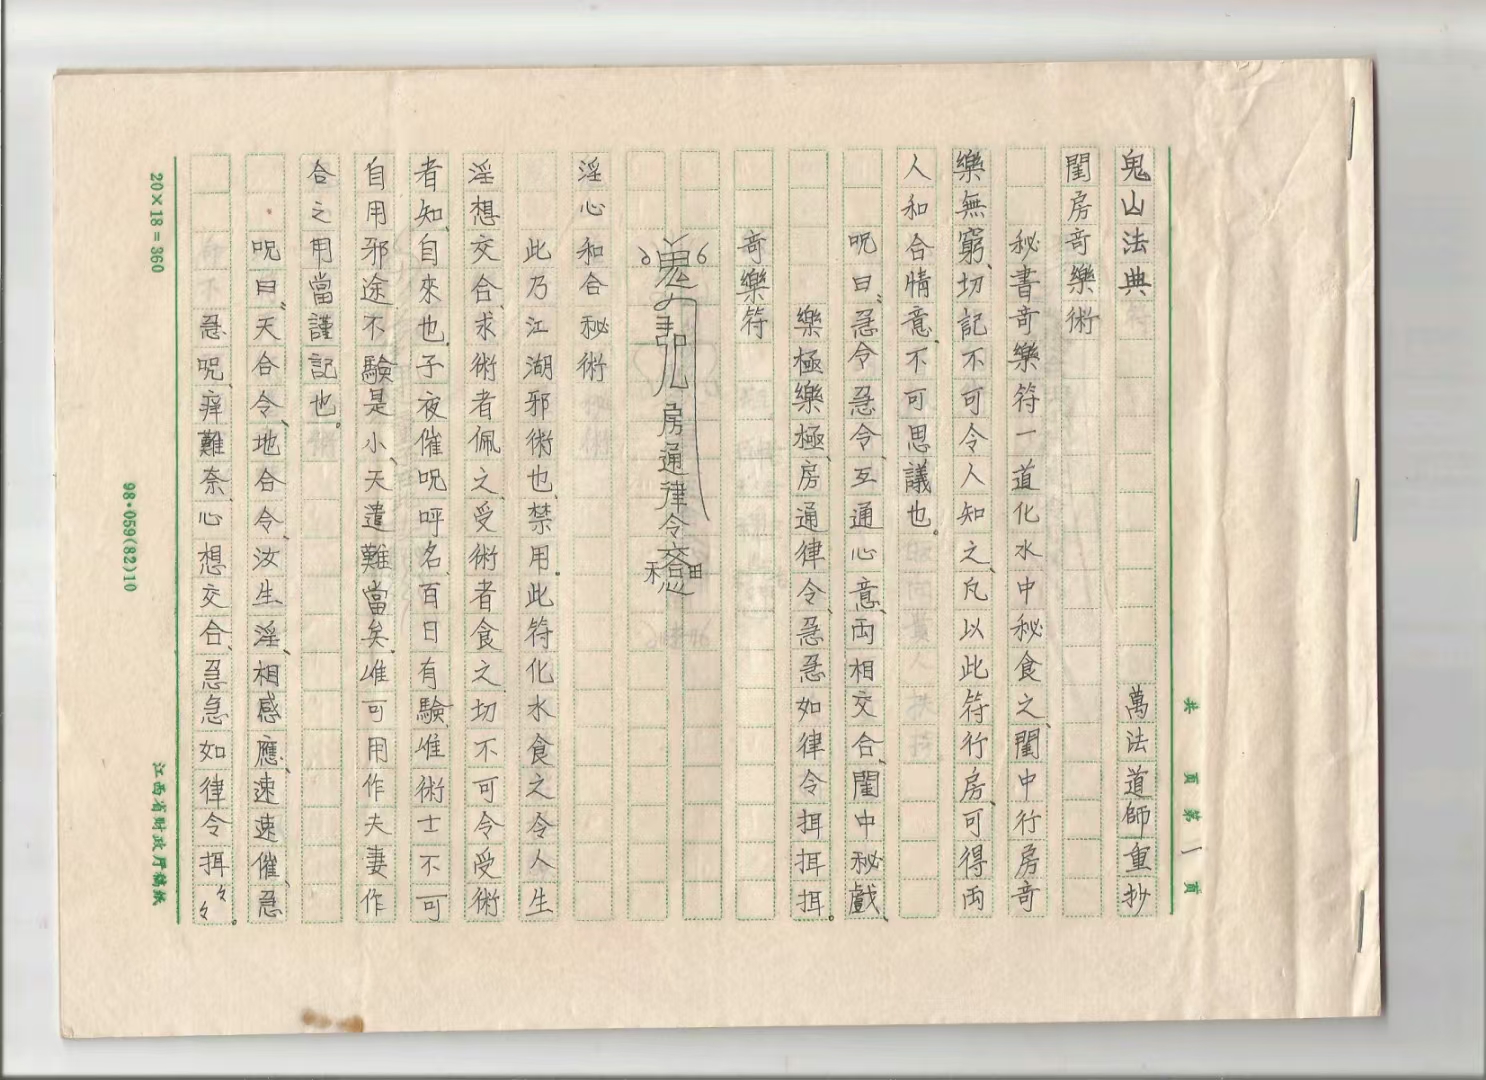 共 頁 第 1 頁
鬼山法典 萬法道師重抄
閨房奇樂術
秘書奇樂符一道化水中秘食之、閨中行房奇
樂無窮、切記不可令人知之、凡以此符行房、可得兩
人和合情意、不可思議也。
呪曰:急令急令、互通心意、兩相交合、閨中秘戲、
樂極樂極、房通律令、急急如律令揖揖揖。
奇樂符
房通律令
淫心和合秘術
此乃江湖邪術也、禁用。此符化水食之令人生
淫想交合、求術者佩之、受術者食之、切不可令受術
者知、自來也、子夜催呪呼名、百日有驗、唯術士不可
自用邪途、不驗是小、天遣難當矣、唯可用作夫妻作
合之用當謹記也。
呪曰:天合令、地合令、汝生淫、相感應、速速催、急
急呪、痒難奈、心想交合、急急如律令揖々々。
20×18=360
98·059(82)10
江西省财政厅稿紙